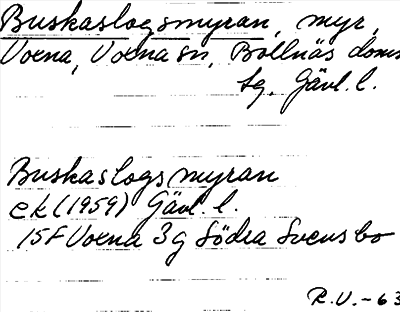 Buskaslogsmyran, myr,
Voxna, Voxna sn, Bollnäs doms
sg. Gävl. l.
Buskaslogsmyran
ek (1959) Gävl. l.
15F Voxna 3g Södra Svensbo
R.V. - 63